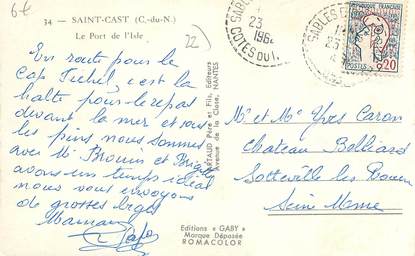 6€
34 - SAINT-CAST (C.-du-N.)
Le Port de l'Isle
22
En route pour le
Cap Fréhel, c'est la
halte pour le repas
devant la mer et sous
les pins nous sommes
avec Mr Brouin et
avons un temps idéal
nous vous envoyons
de grosses bises
Maman
ARTAUD Père et Fils, Editeurs
Avenue de la Close, NANTES
Editions "GABY"
Marque Déposée
ROMACOLOR
23
196
COTES DU N.
SABLES
RÉPUBLIQUE FRANÇAISE
POSTES
0,20
Mr et Me Yves Caron
Chateau Bolliard
Sotteville les Rouen
Seine Mme